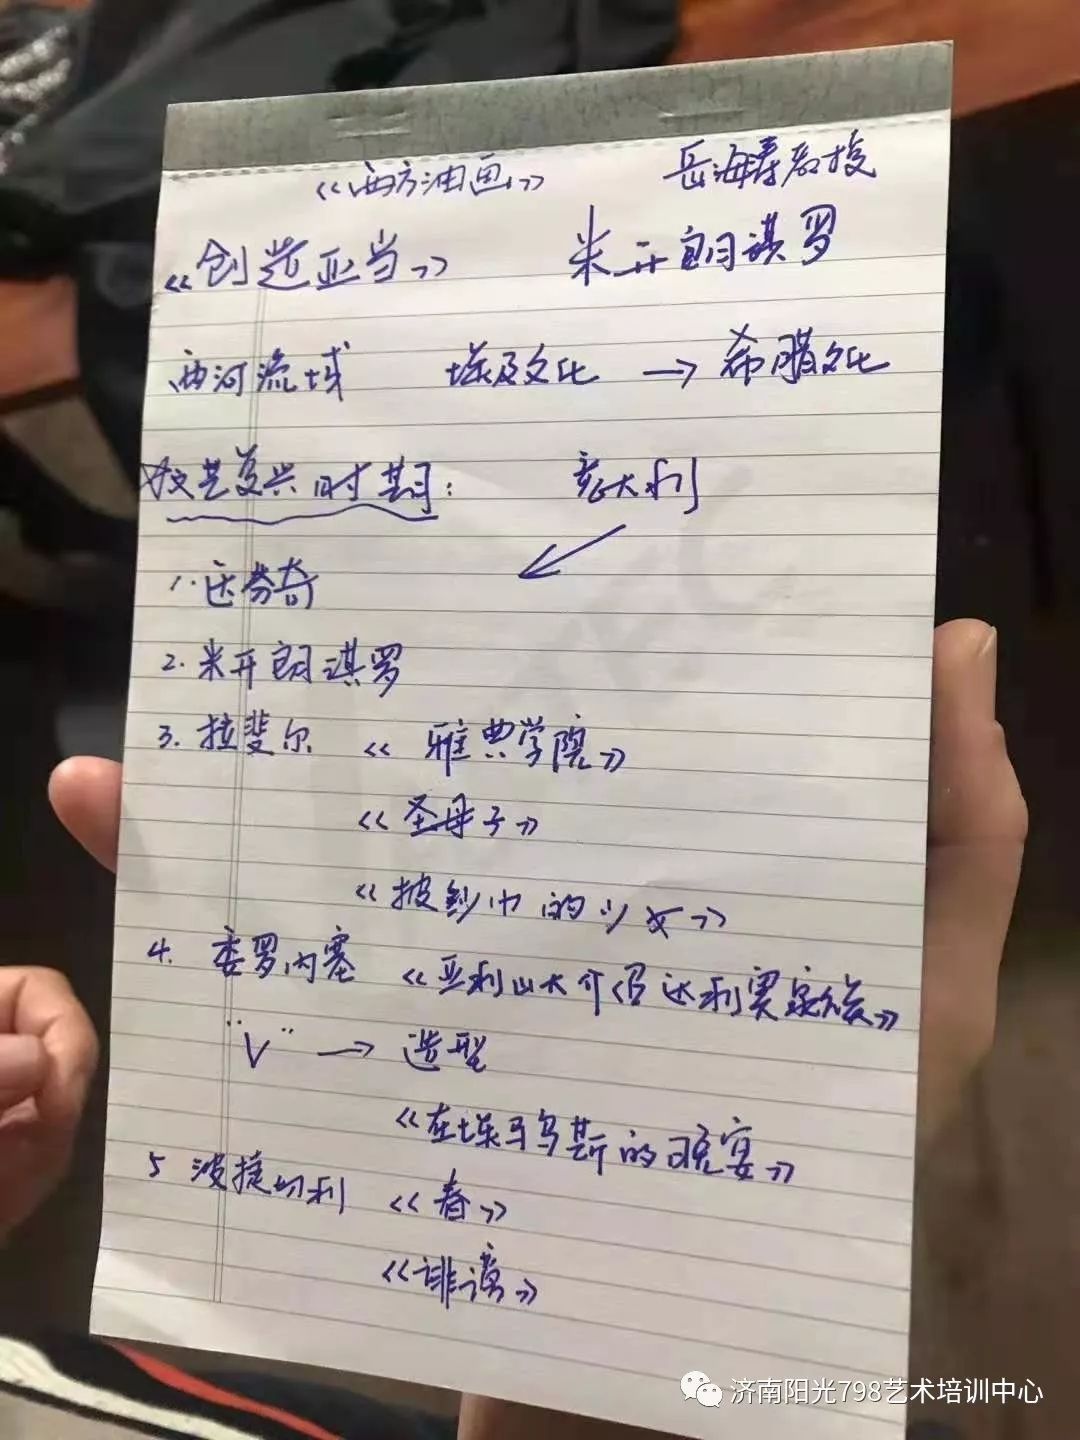 《西方油画》 岳海涛教授
《创造亚当》 米开朗谋罗
两河流域 埃及文化 → 希腊文化
文艺复兴时期： 意大利
1. 达芬奇
2. 米开朗谋罗
3. 拉斐尔 《雅典学院》
《圣母子》
《披纱巾的少女》
4. 委罗内塞 《亚利山大介绍达利奥家族》
"V" → 造型
《在埃马乌斯的晚宴》
5 波提切利 《春》
《诽谤》
济南阳光798艺术培训中心